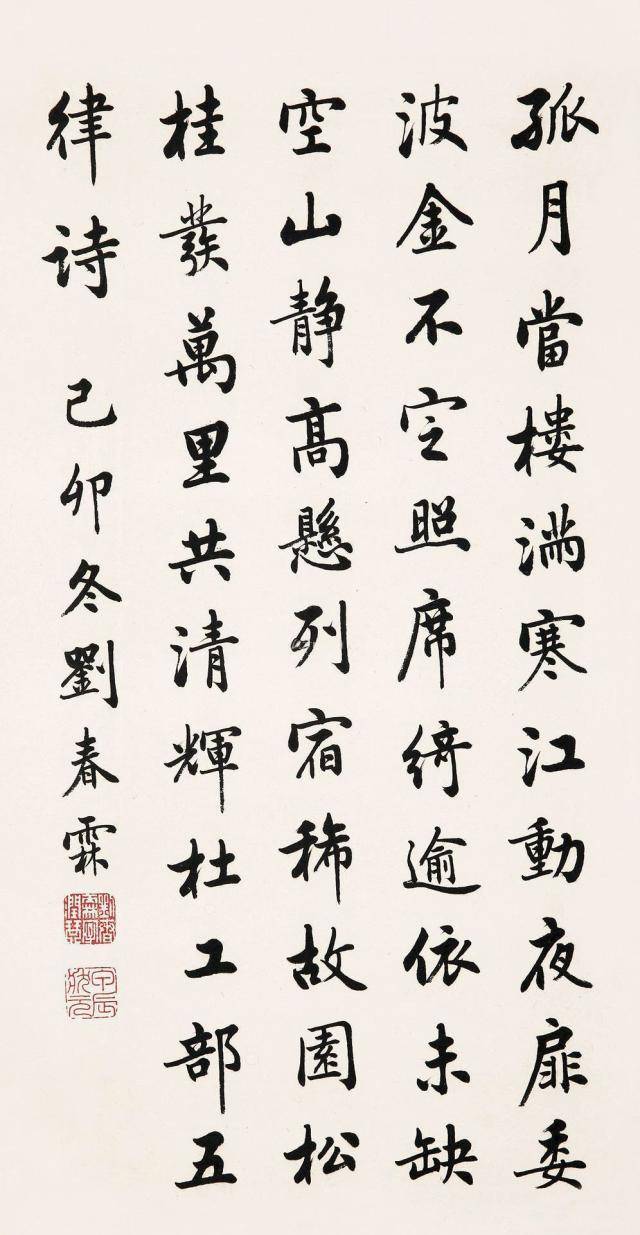 孤月當樓滿寒江動夜扉委
波金不定照席綺逾依未缺
空山静高懸列宿稀故園松
桂發萬里共清輝杜工部五
律诗 己卯冬劉春霖